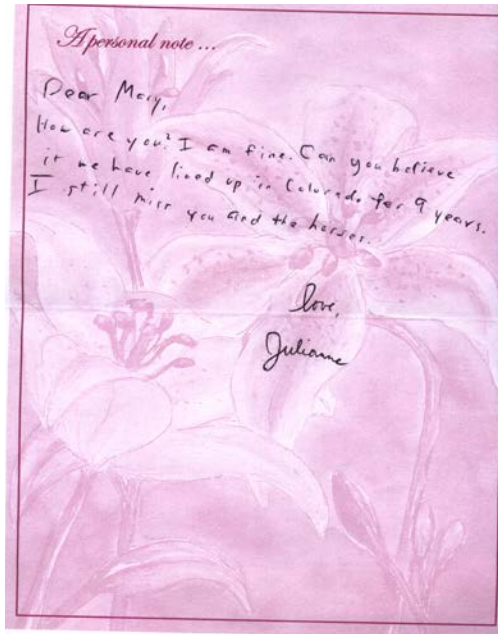 A personal note ...
Dear Mary,
How are you? I am fine. Can you believe
it we have lived up in Colorado for 9 years.
I still miss you and the horses.
love,
Julianne